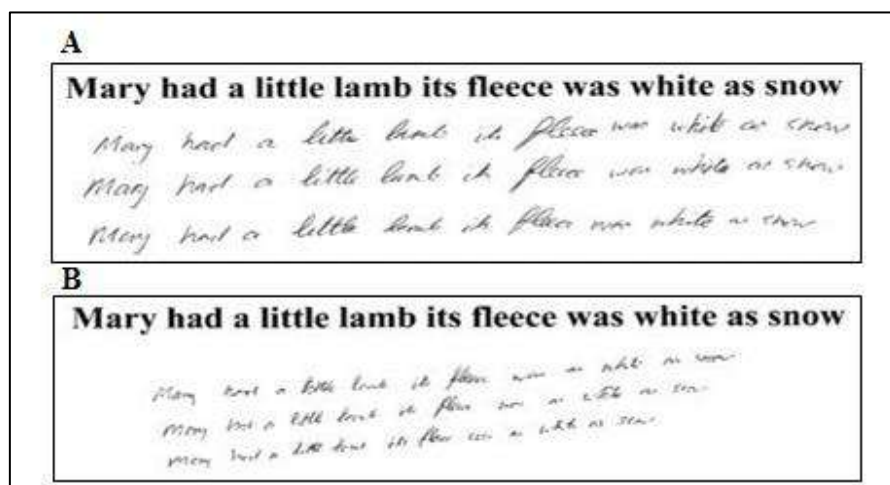 A
Mary had a little lamb its fleece was white as snow
Mary had a little lamb its fleece was white as snow
Mary had a little lamb its fleece was white as snow
Mary had a little lamb its fleece was white as snow
B
Mary had a little lamb its fleece was white as snow
Mary had a little lamb its fleece was as white as snow
Mary had a little lamb its fleece was as white as snow
Mary had a little lamb its fleece was as white as snow